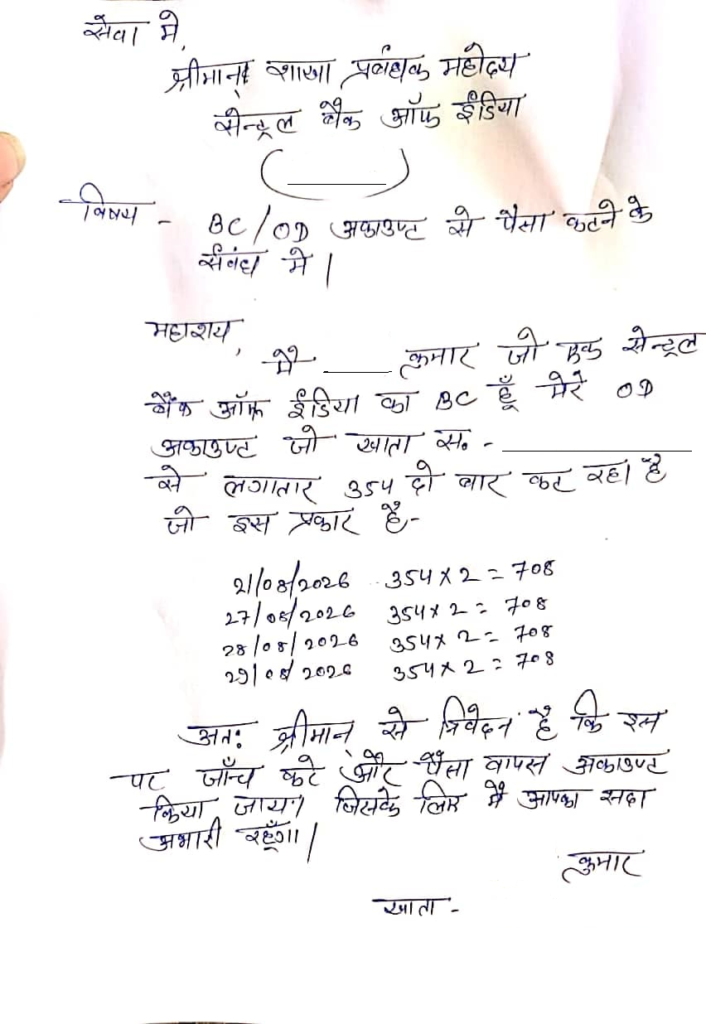 सेवा में,
श्रीमान् शाखा प्रबंधक महोदय
सेन्ट्रल बैंक ऑफ इंडिया
(________)
विषय - BC/OD अकाउण्ट से पैसा कटने के
संबंध में।
महाशय,
मैं ____ कुमार जो एक सेन्ट्रल
बैंक ऑफ इंडिया का BC हूँ मेरे OD
अकाउण्ट जो खाता स. - ________
से लगातार 354 दो बार कट रहा है
जो इस प्रकार है-
21/08/2026 354 x 2 = 708
27/08/2026 354 x 2 = 708
28/08/2026 354 x 2 = 708
29/08/2026 354 x 2 = 708
अतः श्रीमान् से निवेदन है कि इस
पर जाँच करे और पैसा वापस अकाउण्ट
किया जाय। जिसके लिए मैं आपका सदा
अभारी रहूँगा।
कुमार
खाता -